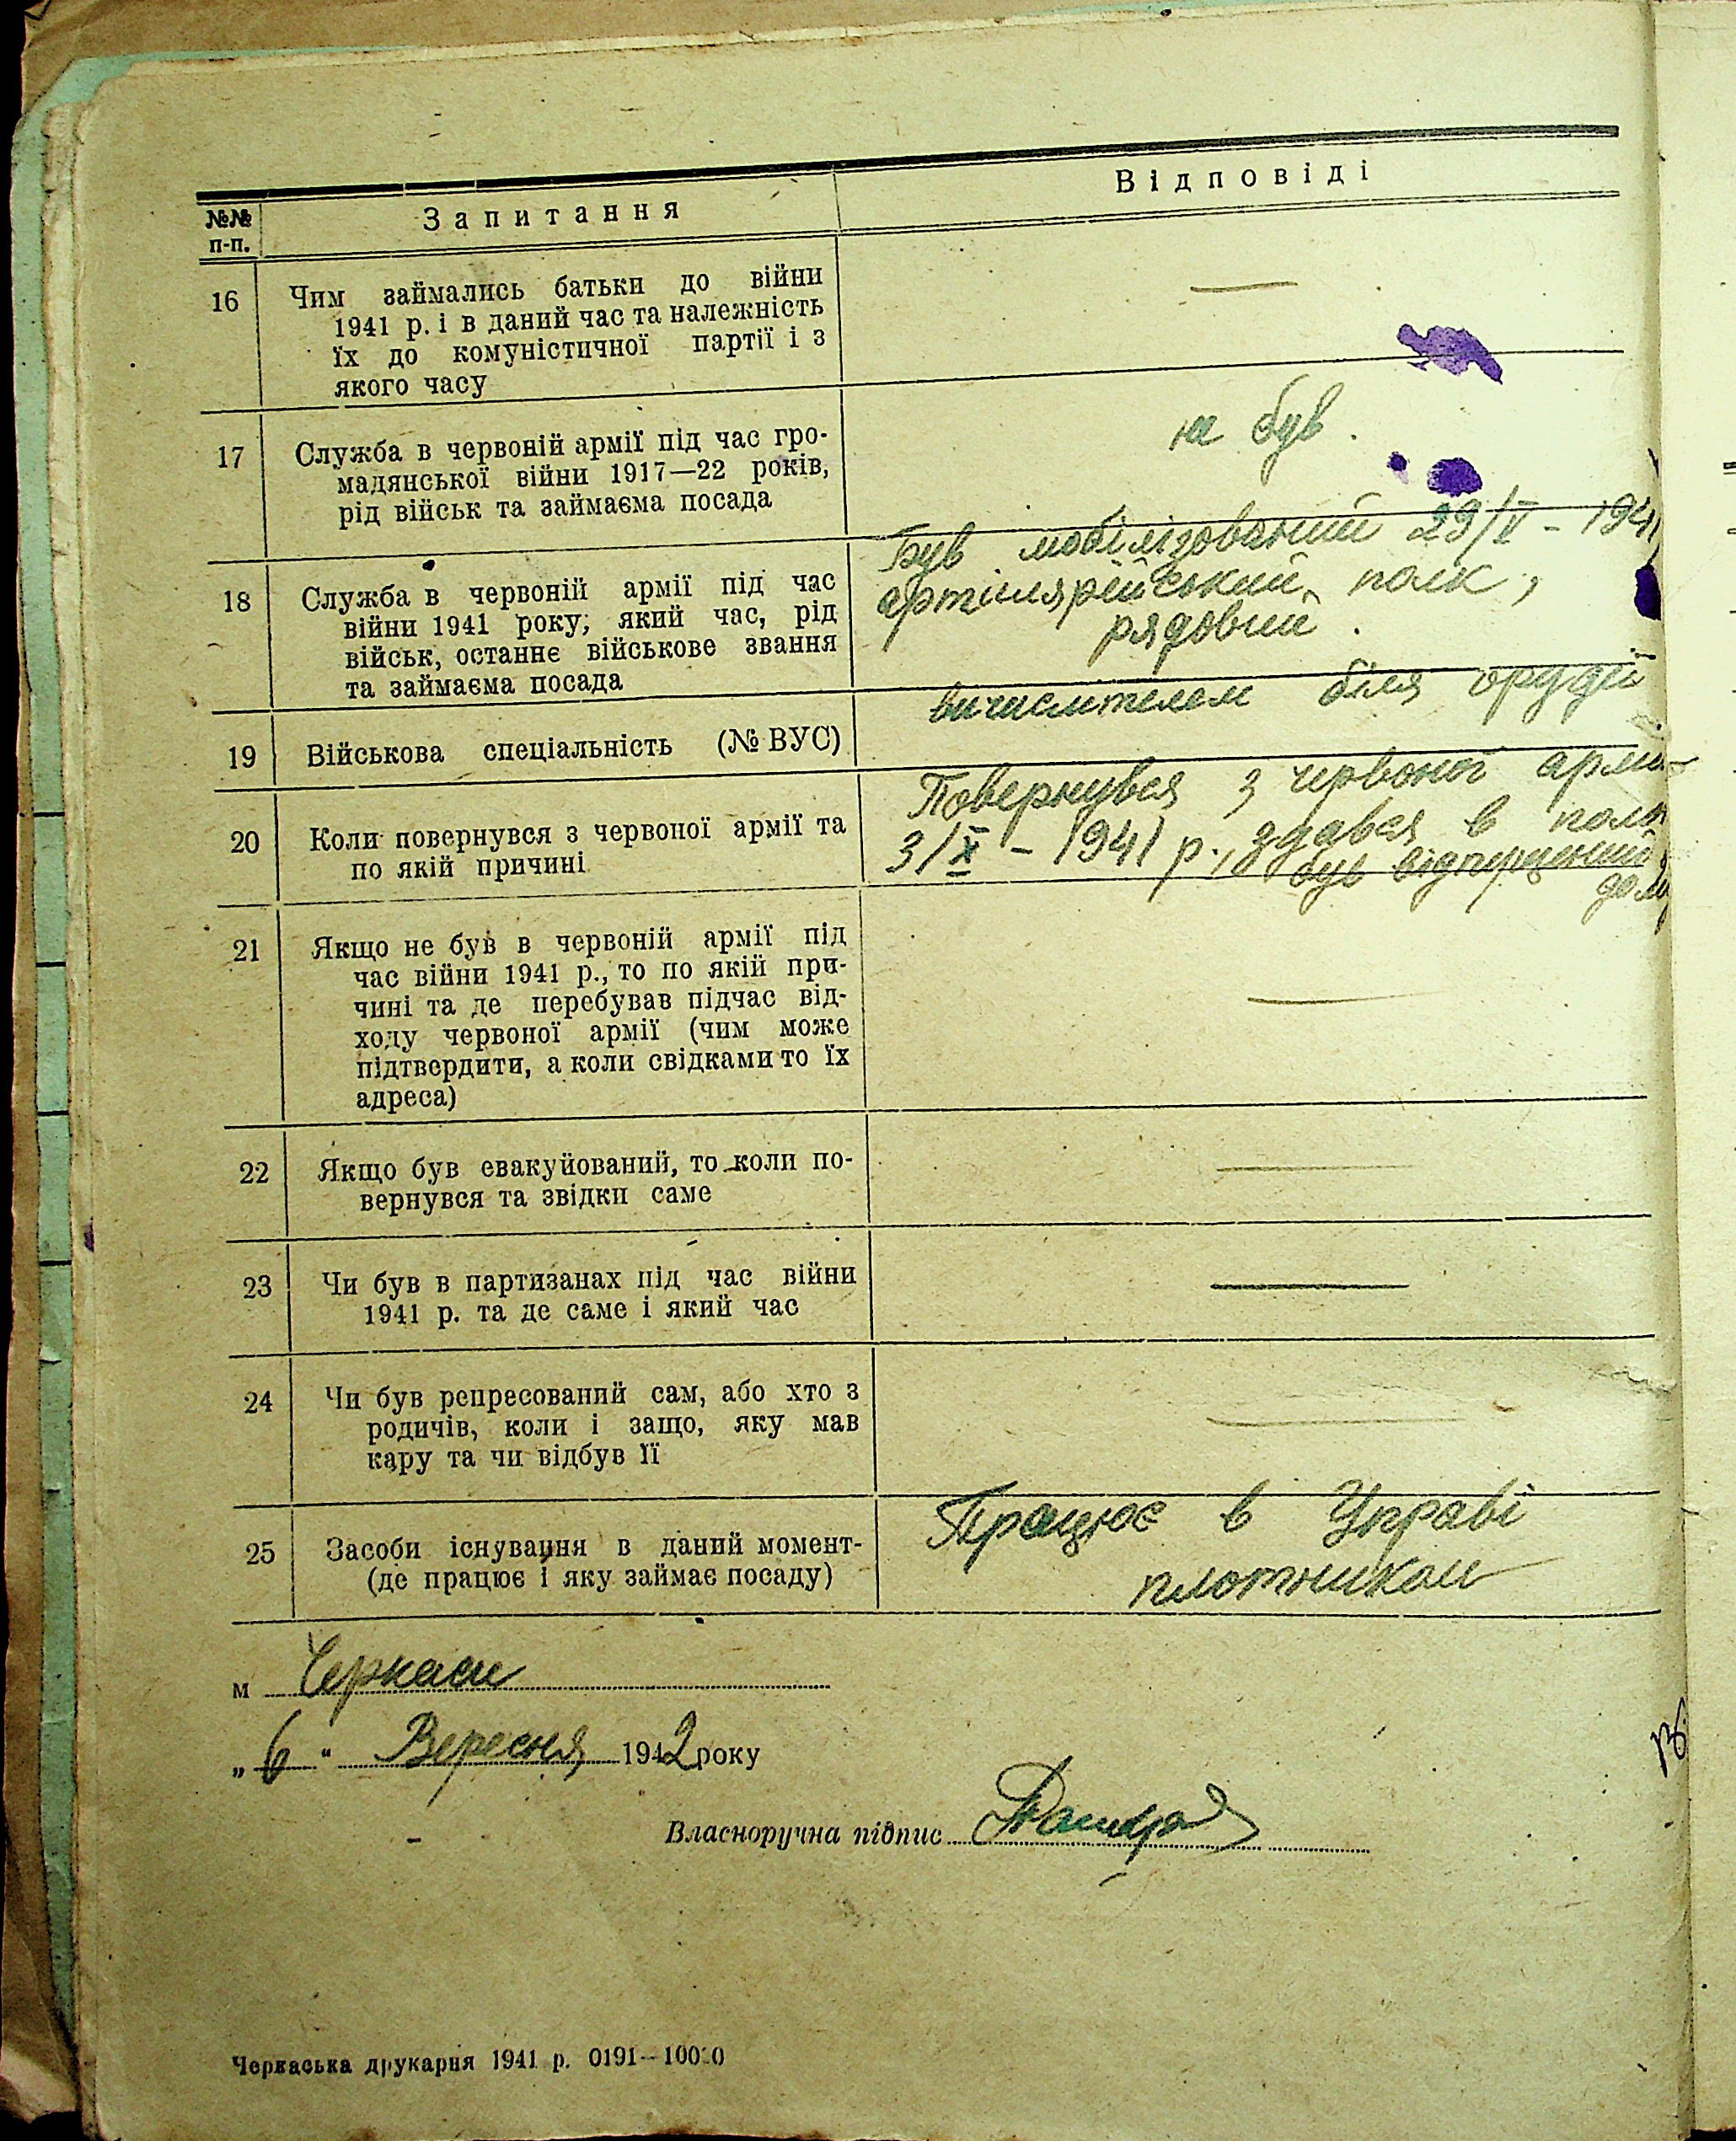 №№ п-п.
Запитання
Відповіді
16
Чим займались батьки до війни
1941 р. і в даний час та належність
їх до комуністичної партії і з
якого часу
—
17
Служба в червоній армії під час гро-
мадянської війни 1917—22 років,
рід військ та займаєма посада
не був.
18
Служба в червоній армії під час
війни 1941 року; який час, рід
військ, останнє військове звання
та займаєма посада
Був мобілізований 29/V - 1941
артілярійський полк,
рядовий.
19
Військова спеціальність (№ ВУС)
вичислителем біля орудії
20
Коли повернувся з червоної армії та
по якій причині
Повернувся з червоної армії
3/X - 1941 р., здався в полон
був відпущений
дому
21
Якщо не був в червоній армії під
час війни 1941 р., то по якій при-
чині та де перебував підчас від-
ходу червоної армії (чим може
підтвердити, а коли свідками то їх
адреса)
—
22
Якщо був евакуйований, то коли по-
вернувся та звідки саме
—
23
Чи був в партизанах під час війни
1941 р. та де саме і який час
—
24
Чи був репресований сам, або хто з
родичів, коли і защо, яку мав
кару та чи відбув її
—
25
Засоби існування в даний момент-
(де працює і яку займає посаду)
Працює в Управі
плотником
м Черкаси
„6“ Вересня 1942 року
Власноручна підпис
Черкаська друкарня 1941 р. 0191—10000